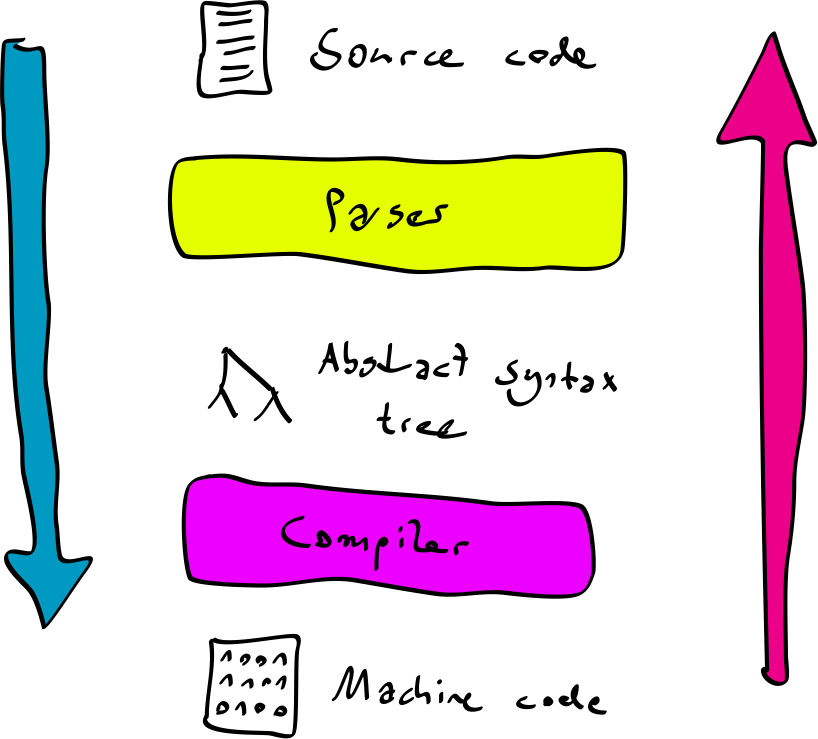 Source code
Parser
Abstract syntax
tree
Compiler
1001
1101
0100
Machine code